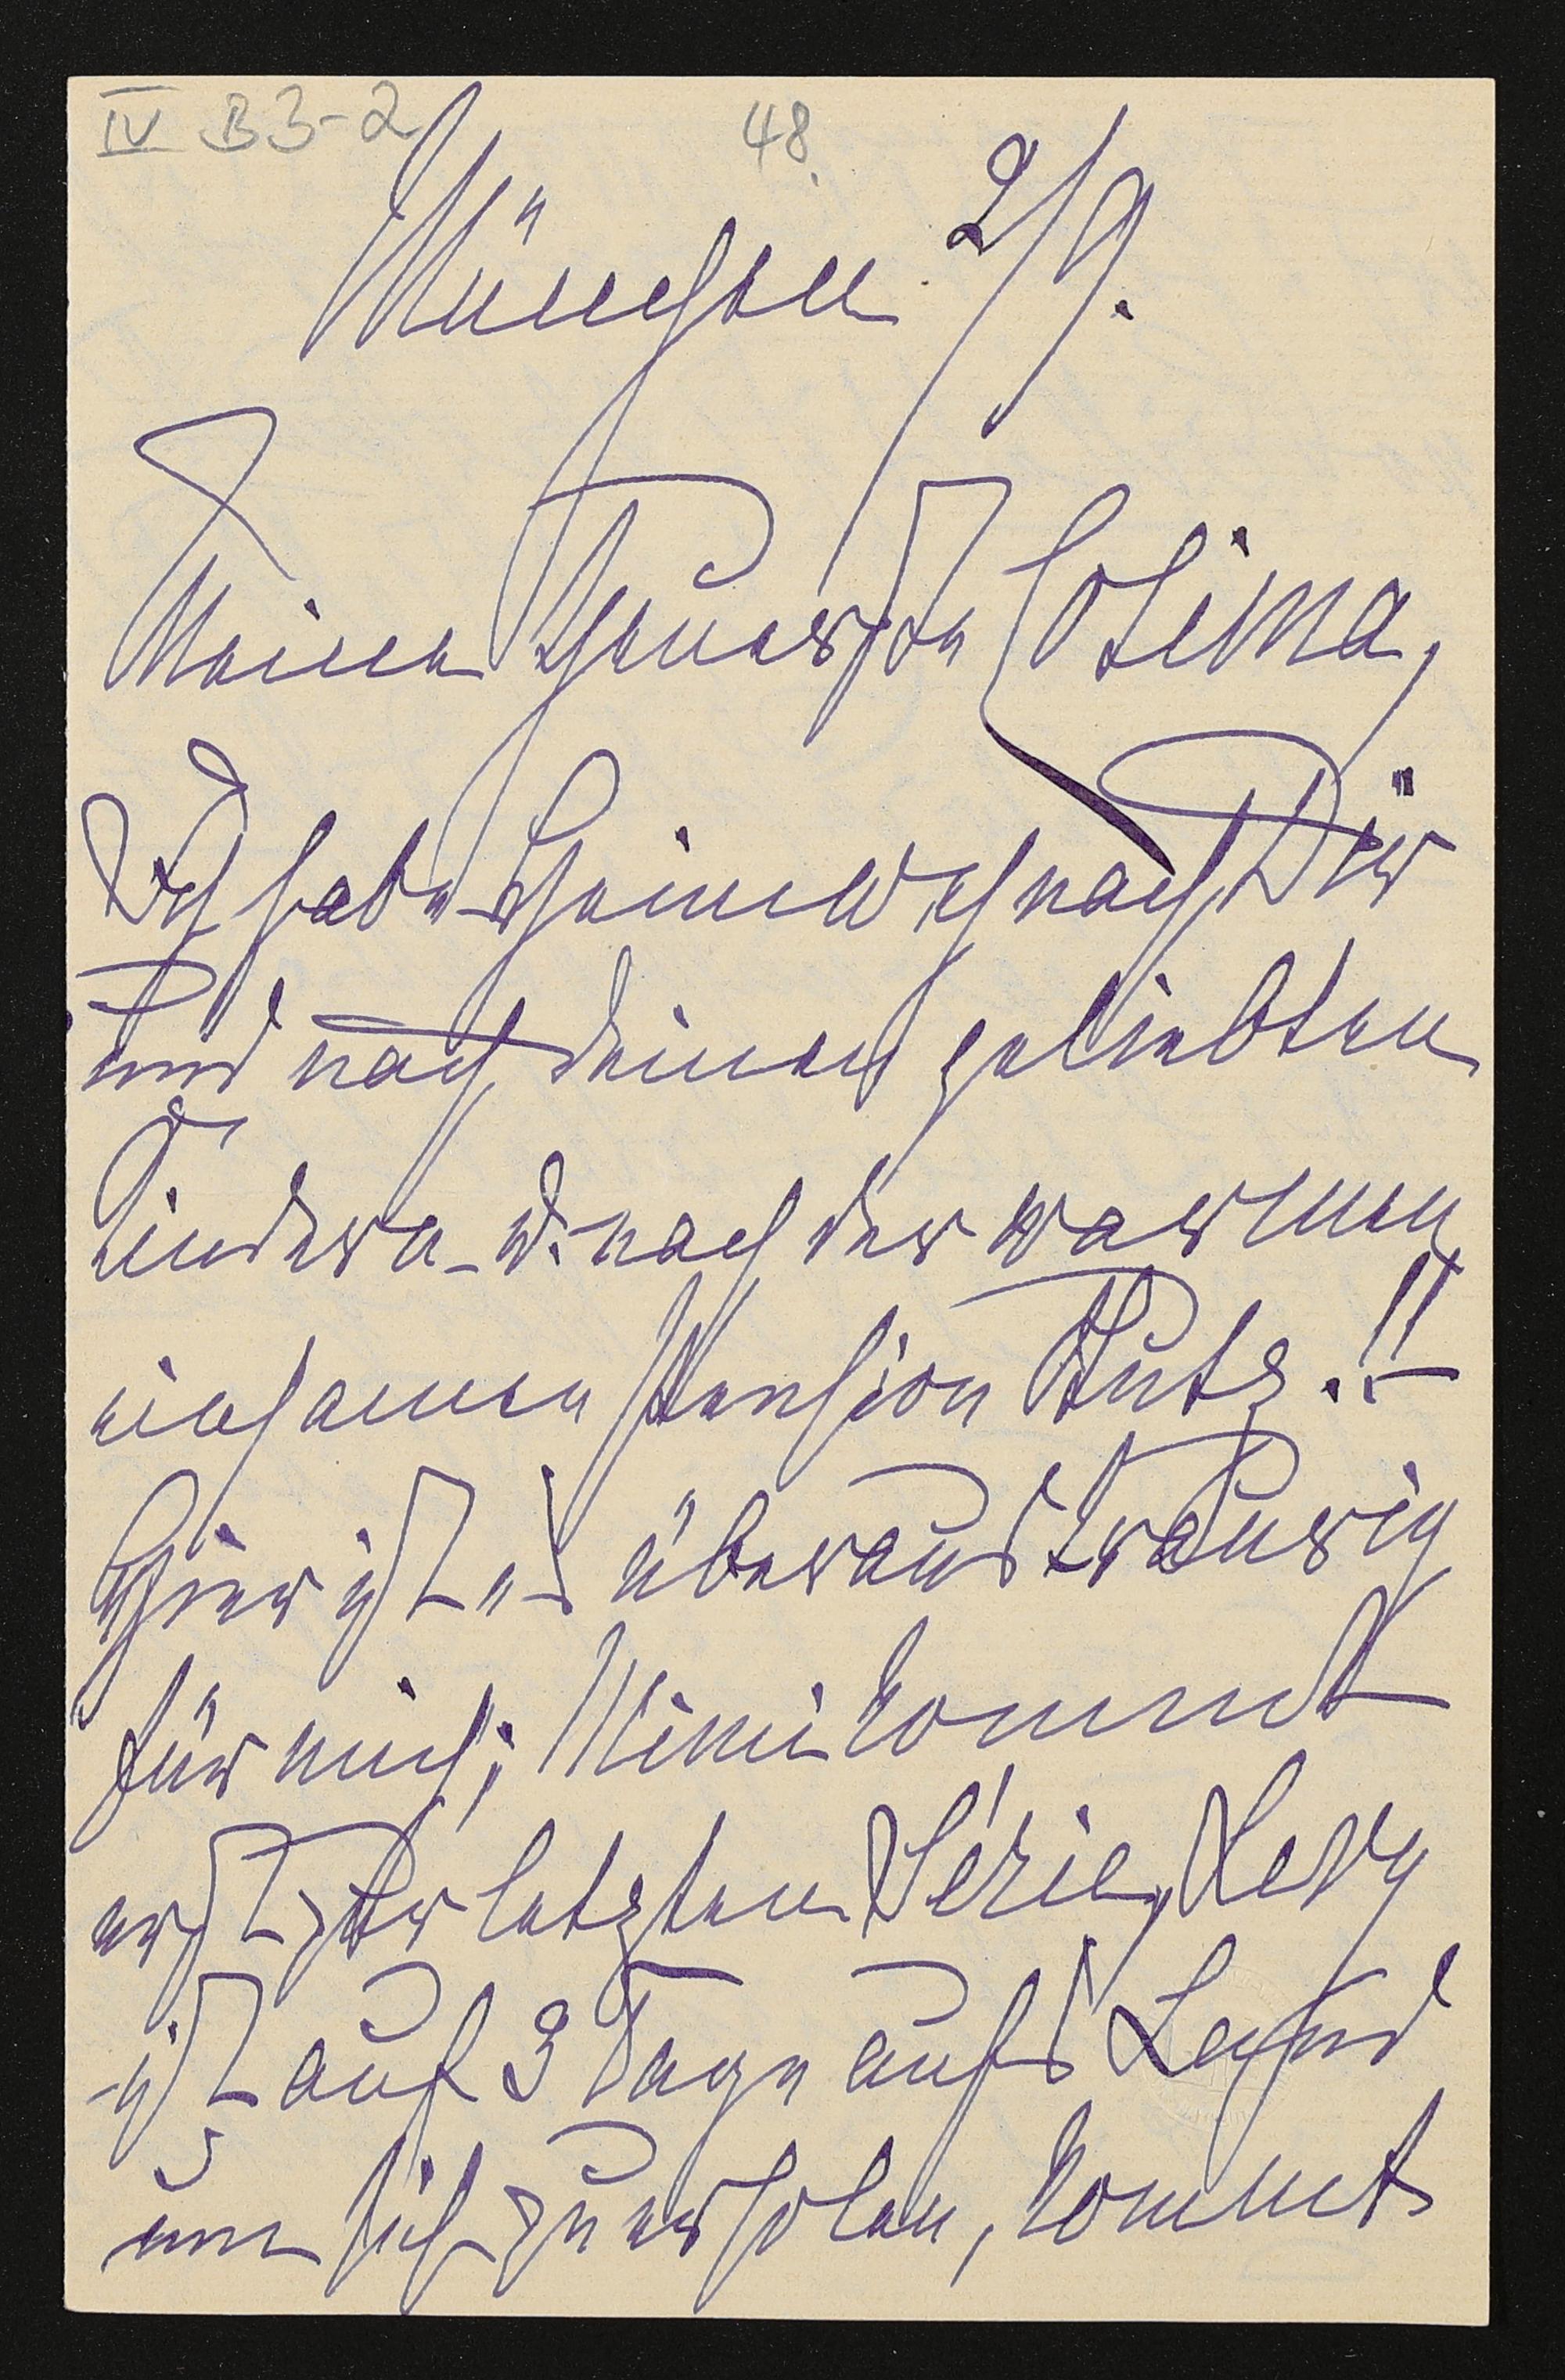 IV B3-2 48.
München 2/9.
Meine theuerste Cosima,
Ich habe Heimweh nach Dir
und nach Deinen geliebten
Kindern – u. nach der warmen
einsamen Pension Stutz.!! –
Hier ist es überaus traurig
für mich; Mimi kommt
erst zur letzten Série, Levy
ist auf 3 Tage aufs Land
um sich zu erholen, kommt